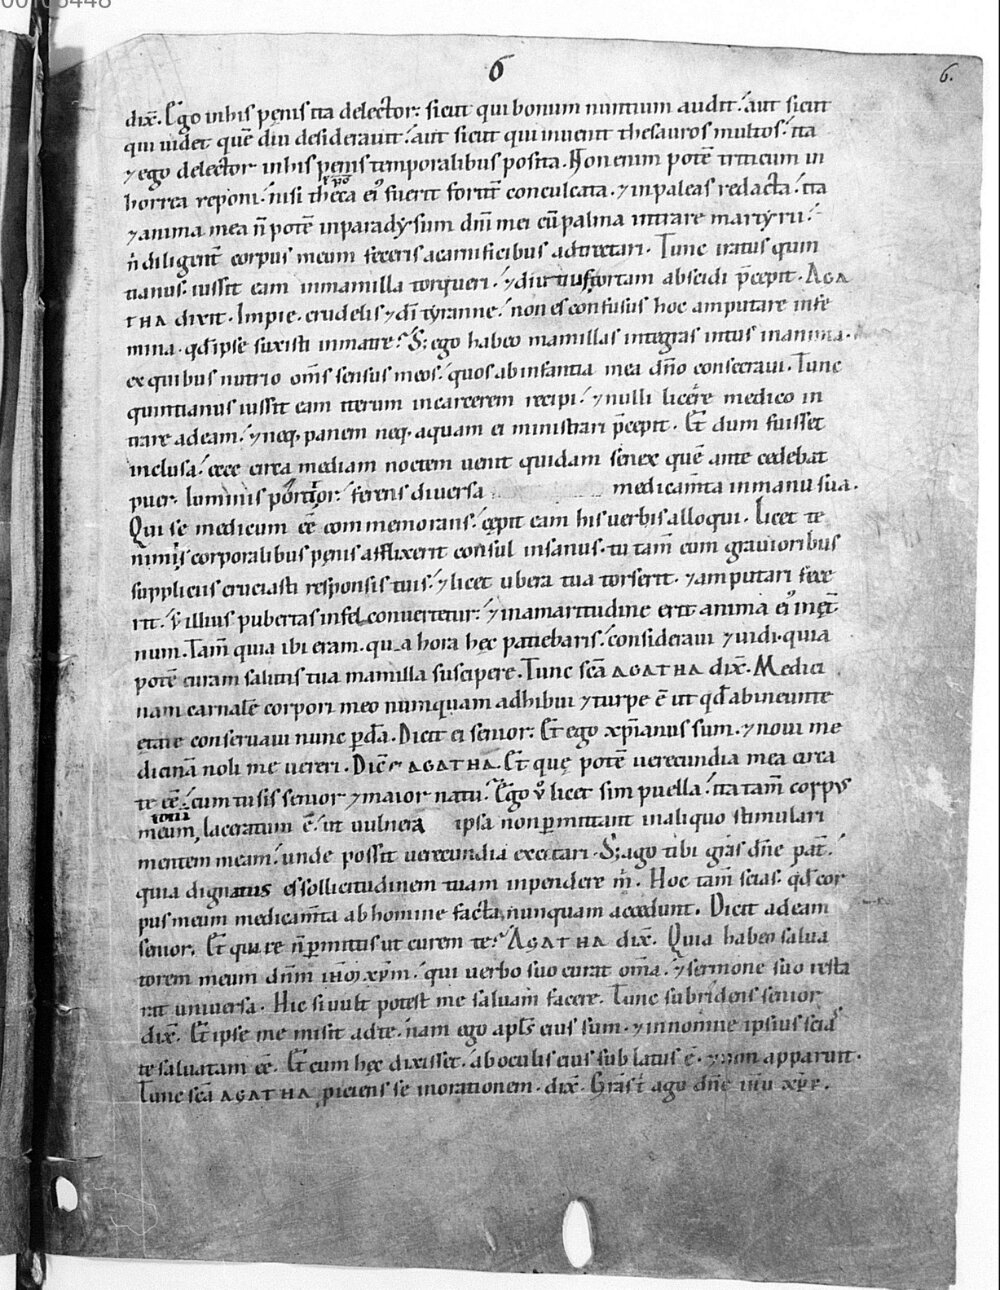 00106448
6
6.
dix̄. Ego inhis pęnis ita delector: sicut qui bonum nuntium audit. aut sicut
qui uidet quē diu desiderauit. aut sicut qui inuenit thesauros multos. ita
⁊ ego delector inhis pęnis temporalibus posita. Non enim potē triticum in
horrea reponi. nisi theca ei᾽ fuerit fortit̄ conculcata. ⁊ inpaleas redacta. ita
⁊ anima mea n̄ potē inparadysum dn̄i mei cū palma intrare martyrii.
n̄ diligent̄ corpus meum feceris acarnificibus adtrectari. Tunc iratus quin
tianus. iussit eam inmamilla torqueri. ⁊ diu tortam abscidi p̄cepit. AGA
THA dixit. Impie. crudelis ⁊ dī tyranne. non es confusus hoc amputare infe
mina. qđ ipse suxisti inmatre? S; ego habeo mamillas integras intus inanima.
ex quibus nutrio om̄s sensus meos. quos ab infantia mea dn̄o consecraui. Tunc
quintianus iussit eam iterum incarcerem recipi. ⁊ nulli licere medico in
trare adeam. ⁊ neq; panem neq; aquam ei ministrari p̄cepit. Et dum fuisset
inclusa. ecce circa mediam noctem uenit quidam senex quē ante cedebat
puer luminis portitor. ferens diversa medicam̄ta inmanu sua.
Qui se medicum ēē commemorans. cępit eam his uerbis alloqui. Licet te
nimiis corporalibus pęnis afflixerit consul insanus. tu tam̄ eum grauioribus
suppliciis cruciasti responsis tuis. ⁊ licet ubera tua torserit. ⁊ amputari fece
rit. illius pubertas infel conuertetur. ⁊ inamaritudine erit anima ei᾽ inęt̄
num. Tam̄ quia ibi eram. qua hora hęc patiebaris. consideraui ⁊ uidi. quia
potē curam salutis tua mamilla suscipere. Tunc sc̄a AGATHA dix̄. Medici
nam carnalē corpori meo numquam adhibui ⁊ turpe ē ut qđ abineunte
ętate conseruaui nunc p̄dā. Dicit ei senior. Et ego xp̄ianus sum. ⁊ noui me
dicinā noli me uereri. Dic̄ AGATHA. Et quę potē uerecundia mea circa
te ēē. cum tu sis senior ⁊ maior natu. Ego v̊ licet sim puella. ita tam̄ corpus
meum, laceratum ē. ut uulnera ipsa non p̄mittant inaliquo stimulari
totū
mentem meam. unde possit uerecundia excitari. S; ago tibi gr̄as dn̄e pat̄.
quia dignatus es sollicitudinem tuam inpendere m̄. Hoc tam̄ scias. qđ cor
pus meum medicam̄ta ab homine facta, nunquam accedunt. Dicit adeam
senior. Et quare n̄ p̄mittis ut curem te? AGATHA dix̄. Quia habeo salua
torem meum dn̄m ihm̄ xp̄m. qui uerbo suo curat om̄a. ⁊ sermone suo resta
rat uniuersa. Hic si uult potest me saluam facere. Tunc subridens senior
dix̄. Et ipse me misit adte. nam ego apl̄s eius sum. ⁊ innomine ipsius scias
te saluatam ēē. Et cum hęc dixisset. ab oculis eius sublatus ē. ⁊ non apparuit.
Tunc sc̄a AGATHA piciens se inorationem. dix̄. Gr̄as t̄ ago dn̄e ihu xp̄e.